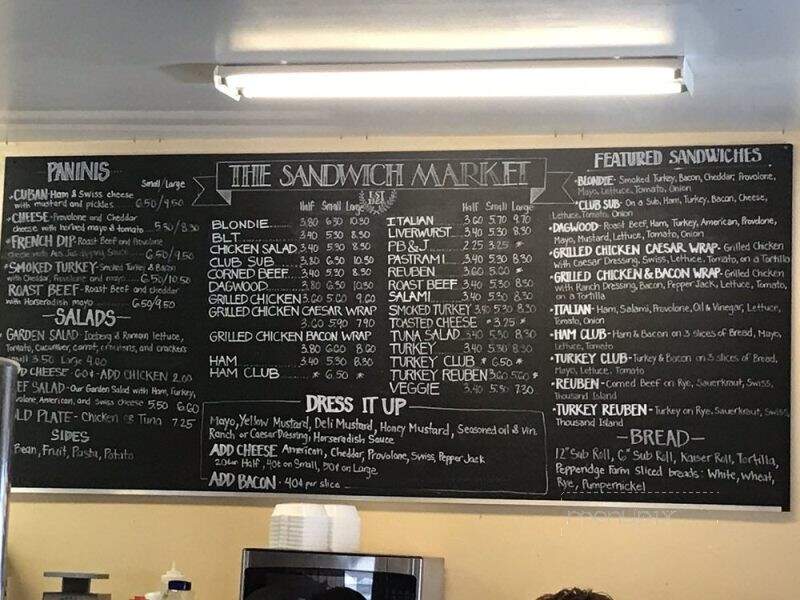 THE SANDWICH MARKET
EST.
PANINIS
Small/Large
CUBAN - Ham & Swiss cheese
with mustard and pickles. 6.50/9.50
CHEESE - Provolone and Cheddar
cheese with herbed mayo & tomato 5.50/8.30
FRENCH DIP - Roast Beef and Provolone
cheese with Au Jus dipping Sauce 6.50/9.50
SMOKED TURKEY - Smoked Turkey & Bacon
with Cheddar, Provolone and mayo 6.50/10.50
ROAST BEEF - Roast Beef and cheddar
with Horseradish mayo 6.50/9.50
SALADS
GARDEN SALAD - Iceberg & Romain lettuce,
Tomato, Cucumber, carrot, croutons, and crackers
3.50 Large 4.60
CHEESE - 60¢ - ADD CHICKEN 2.00
EF SALAD - Our Garden Salad with Ham, Turkey,
American, and Swiss cheese 5.50 6.60
LD PLATE - Chicken or Tuna 7.25
SIDES
Bean, Fruit, Pasta, Potato
Half Small Large
BLONDIE 3.80 6.50 10.50
BLT 3.40 5.30 8.50
CHICKEN SALAD 3.40 5.30 8.30
CLUB SUB 3.80 6.50 10.50
CORNED BEEF 3.40 5.30 8.50
DAGWOOD 3.80 6.50 10.50
GRILLED CHICKEN 3.60 5.60 9.60
GRILLED CHICKEN CAESAR WRAP
3.60 5.90 7.90
GRILLED CHICKEN BACON WRAP
3.80 6.60 8.60
HAM 3.40 5.30 8.30
HAM CLUB * 6.50 *
Half Small Large
ITALIAN 3.60 5.70 9.70
LIVERWURST 3.40 5.30 8.30
PB & J 2.25 3.25 *
PASTRAMI 3.40 5.30 8.50
REUBEN 3.60 5.60 *
ROAST BEEF 3.40 5.30 8.50
SALAMI 3.40 5.30 8.30
SMOKED TURKEY 3.40 5.30 8.30
TOASTED CHEESE * 3.25 *
TUNA SALAD 3.40 5.30 8.30
TURKEY 3.40 5.30 8.30
TURKEY CLUB * 6.50 *
TURKEY REUBEN 3.60 5.60 *
VEGGIE 3.40 5.30 7.30
DRESS IT UP
Mayo, Yellow Mustard, Deli Mustard, Honey Mustard, Seasoned oil & Vin.
Ranch or Caesar Dressing, Horseradish Sauce
ADD CHEESE American, Cheddar, Provolone, Swiss, Pepper Jack
20¢ on Half, 40¢ on Small, 50¢ on Large
ADD BACON - 40¢ per slice
FEATURED SANDWICHES
BLONDIE - Smoked Turkey, Bacon, Cheddar, Provolone,
Mayo, Lettuce, Tomato, Onion
CLUB SUB - On a Sub, Ham, Turkey, Bacon, Cheese,
Lettuce, Tomato, Onion
DAGWOOD - Roast Beef, Ham, Turkey, American, Provolone,
Mayo, Mustard, Lettuce, Tomato, Onion
GRILLED CHICKEN CAESAR WRAP - Grilled Chicken
with Caesar Dressing, Swiss, Lettuce, Tomato, on a Tortilla
GRILLED CHICKEN & BACON WRAP - Grilled Chicken
with Ranch Dressing, Bacon, Pepper Jack, Lettuce, Tomato,
on a Tortilla
ITALIAN - Ham, Salami, Provolone, Oil & Vinegar, Lettuce,
Tomato, Onion
HAM CLUB - Ham & Bacon on 3 slices of Bread, Mayo,
Lettuce, Tomato
TURKEY CLUB - Turkey & Bacon on 3 slices of Bread,
Mayo, Lettuce, Tomato
REUBEN - Corned Beef on Rye, Sauerkraut, Swiss,
Thousand Island
TURKEY REUBEN - Turkey on Rye, Sauerkraut, Swiss,
Thousand Island
BREAD
12" Sub Roll, 6" Sub Roll, Kaiser Roll, Tortilla,
Pepperidge Farm sliced breads: White, Wheat,
Rye, Pumpernickel
menupix